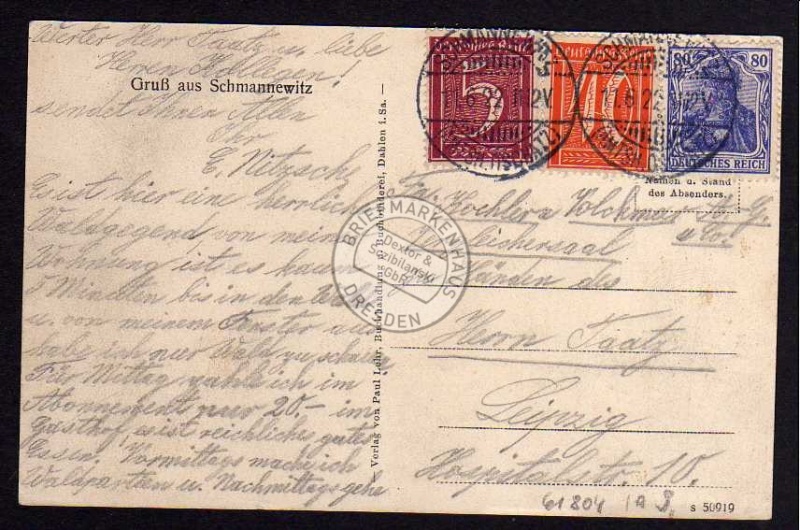 Werter Herr Taatz u. liebe
Herren Kollegen!
Gruß aus Schmannewitz
sendet Ihnen Allen
Ihr
E. Nitzsch
Es ist hier eine herrliche
Waldgegend von meiner
Wohnung ist es kaum
5 Minuten bis in den Wald
u. von meinem Fenster aus
habe ich nur Wald zu schauen
Für Mittag zahle ich im
Abonnement nur 20.- im
Gasthof, es ist reichliches gutes
Essen. Vormittags mache ich
Waldpartien u. Nachmittags gehe
Verlag von Paul Lohr, Buchhandlung u. Buchbinderei, Dahlen i. Sa.
5
10
80 80
DEUTSCHES REICH
Namen u. Stand
des Absenders.
Fa. Koehler u. Volckmar A. G.
u Co.
Händen des
Herrn Taatz
Leipzig
Hospitalstr. 10.
61804
s 50919
BRIEFMARKENHAUS
Dextor &
Sezibilanski
GbR
DRESDEN